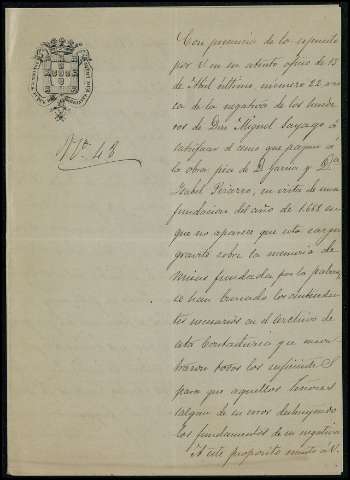 Nº. 43
Con presencia de lo espuesto
por V. en su atento oficio de 13
de Abril último número 22 acer
ca de la negativa de los herede
ros de Don Miguel Sayago á
satisfacer el censo que pagan á
la obra pia de D. Garcia y Dª
Isabel Pizarro, en vista de una
fundacion del año de 1.668 en
que no aparece que esta carga
gravite sobre la memoria de
misas fundada por la
se han buscado los anteceden
tes necesarios en el archivo de
esta Contaduria que mues
traron todos los
para que aquellos Señores
salgan de su error destruyendo
los fundamentos de su negativa
A este proposito remito á V.